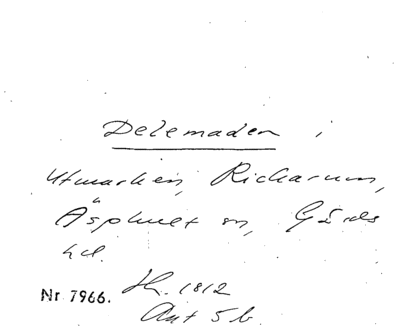 Delemaden i
Utmarken, Rickarum,
Äsphult sn, Gärds
hd.
Nr 7966. Hr. 1812
Akt 5 b